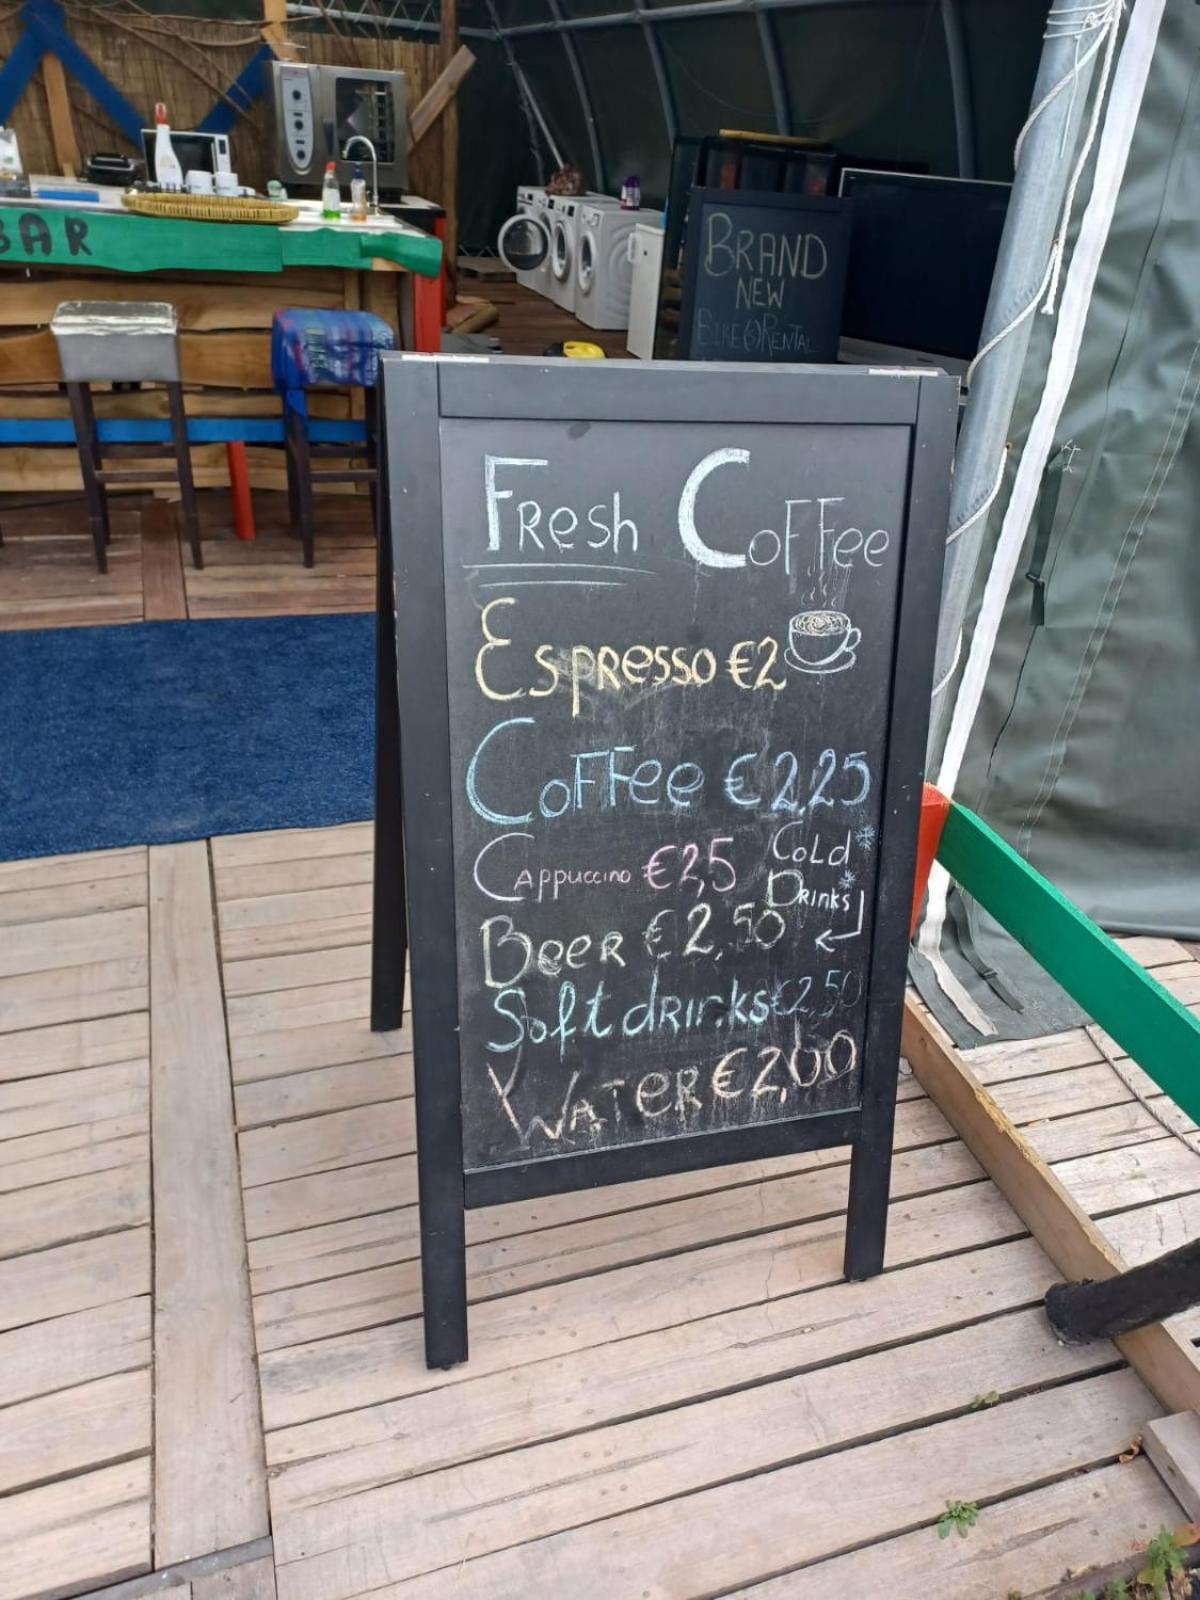 BAR
BRAND
NEW
BIKE(S) RENTAL
FRESH COFFEE
ESPRESSO €2
COFFEE €2,25
CAPPUCCINO €2,5
COLD
DRINKS
BEER €2,50
Soft dRINKS €2,50
WATER €2,00